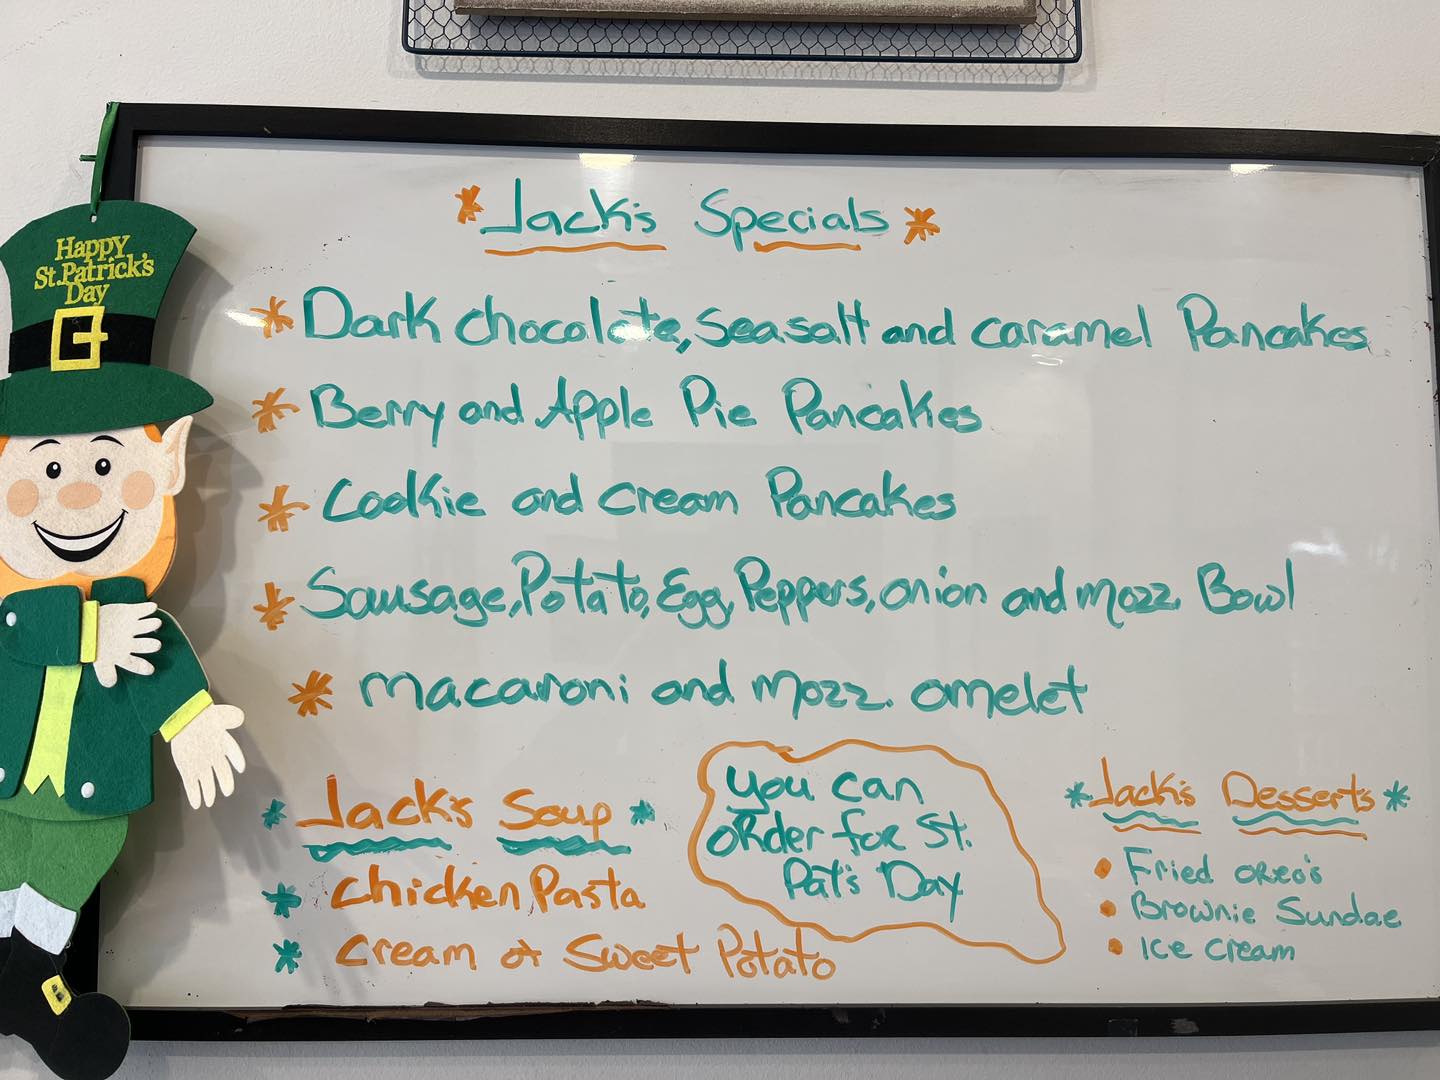 Happy
St. Patrick's
Day
* Jack's Specials *
* Dark chocolate, seasalt and caramel Pancakes
* Berry and Apple Pie Pancakes
* Cookie and cream Pancakes
* Sausage, Potato, Egg, Peppers, onion and mozz. Bowl
* macaroni and mozz. omelet
* Jack's Soup *
* Chicken Pasta
* Cream of Sweet Potato
You can
order for St.
Pat's Day
* Jack's Desserts *
• Fried oreo's
• Brownie Sundae
• Ice cream